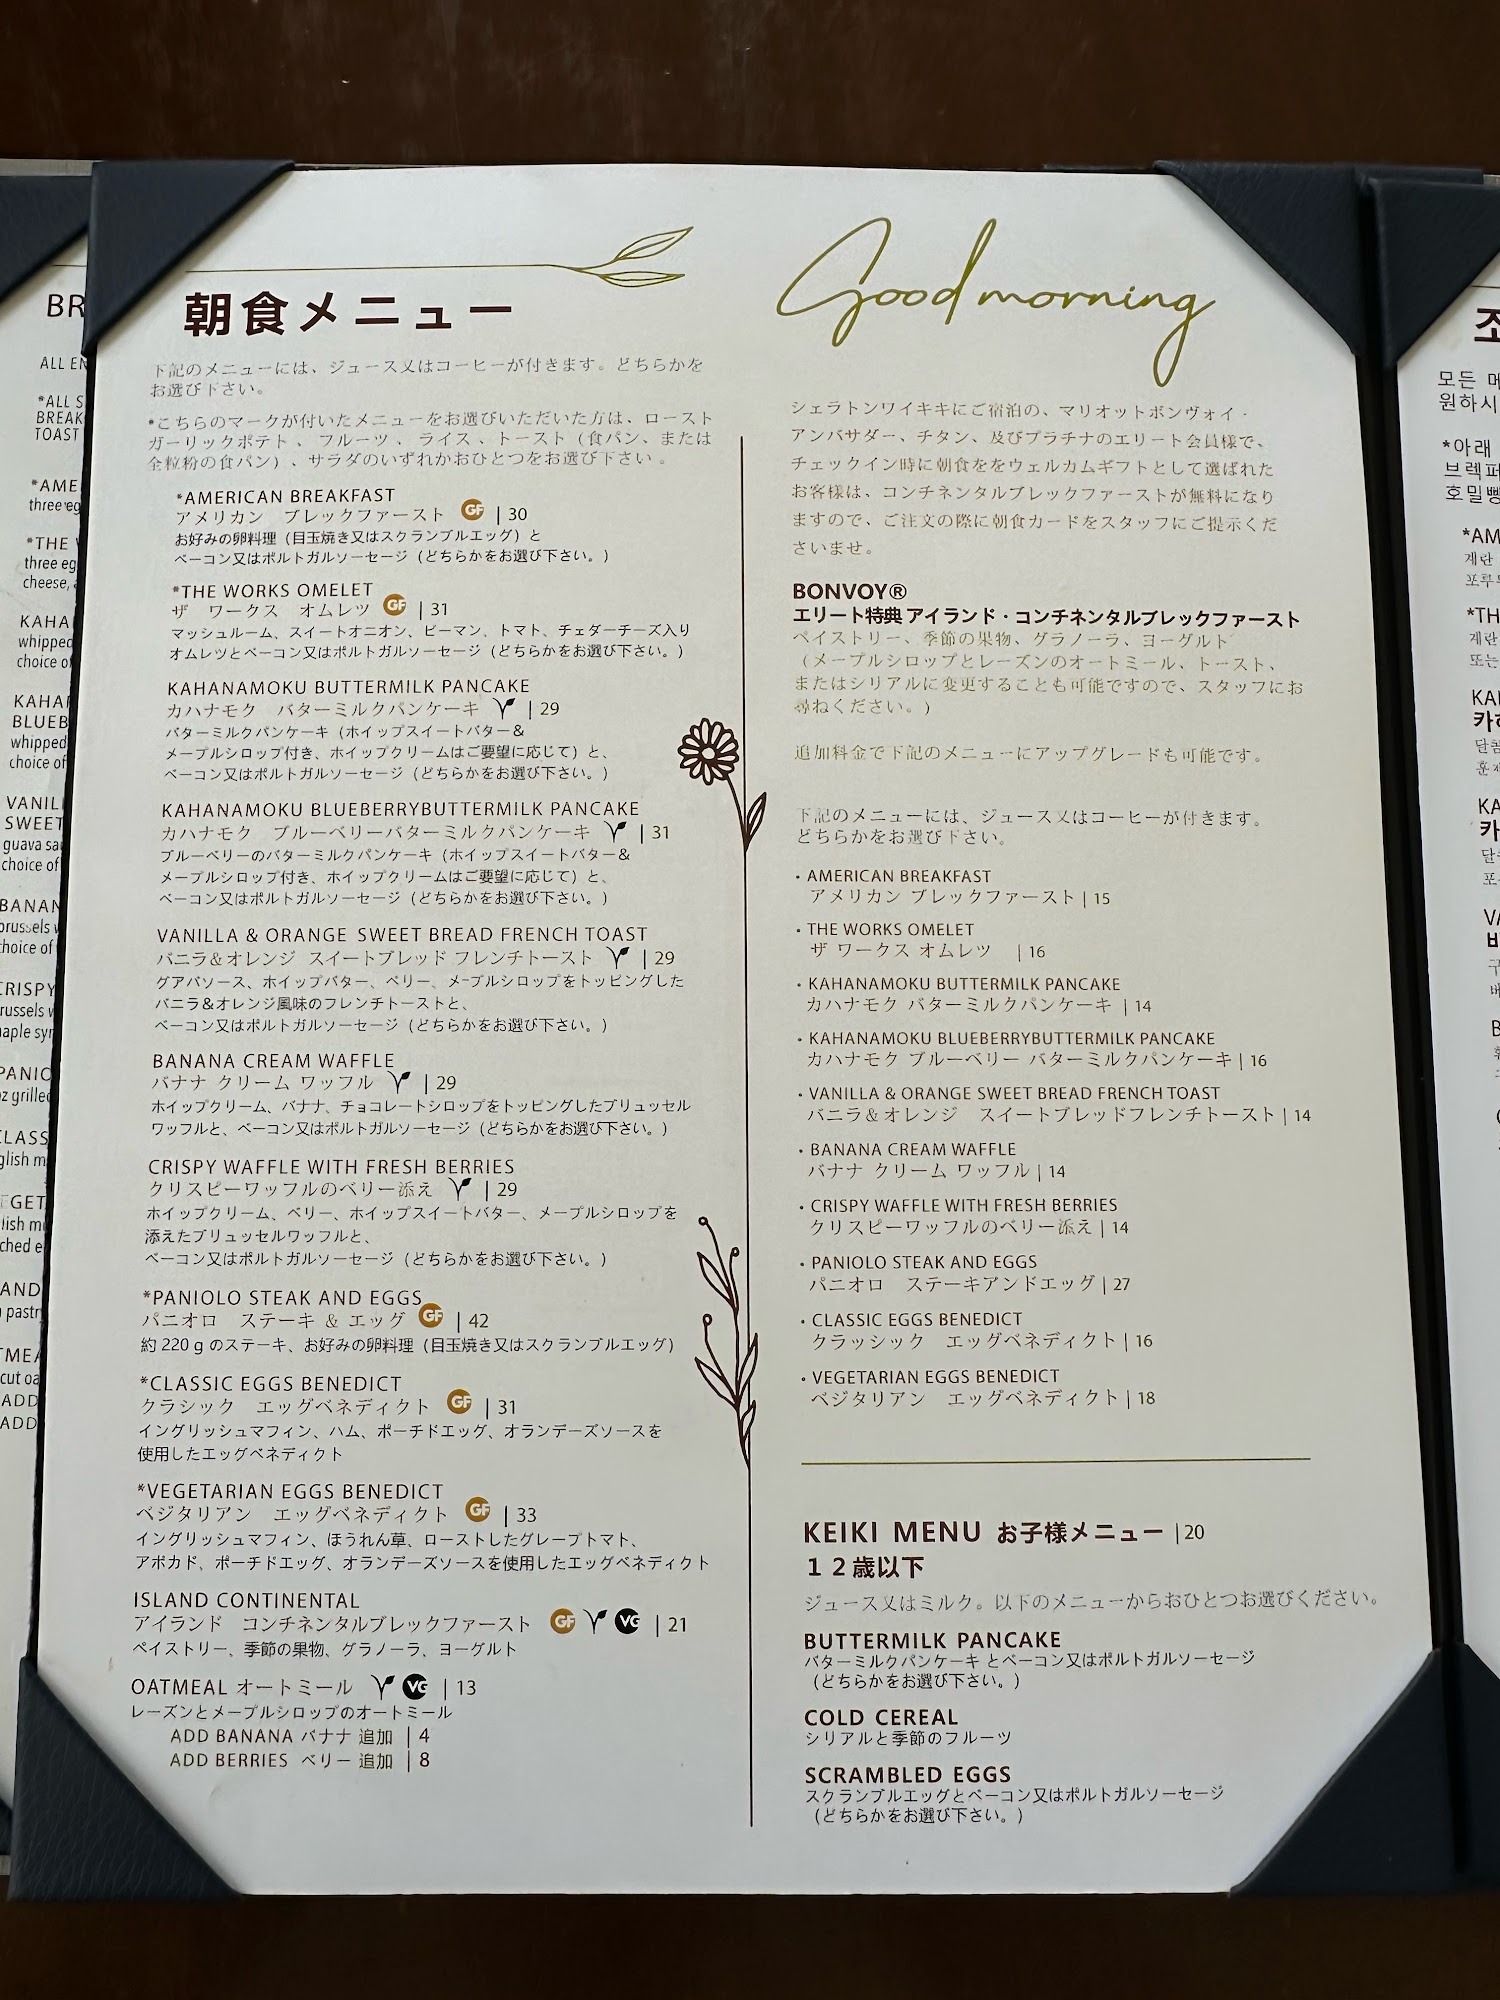 朝食メニュー
下記のメニューには、ジュース又はコーヒーが付きます。どちらかを
お選び下さい。
*こちらのマークが付いたメニューをお選びいただいた方は、ロースト
ガーリックポテト 、 フルーツ 、 ライス 、トースト（食パン、または
全粒粉の食パン）、サラダのいずれかおひとつをお選び下さい 。
*AMERICAN BREAKFAST
アメリカン ブレックファースト GF | 30
お好みの卵料理（目玉焼き又はスクランブルエッグ）と
ベーコン又はポルトガルソーセージ（どちらかをお選び下さい。）
*THE WORKS OMELET
ザ ワークス オムレツ GF | 31
マッシュルーム、スイートオニオン、ピーマン、トマト、チェダーチーズ入り
オムレツとベーコン又はポルトガルソーセージ（どちらかをお選び下さい。）
KAHANAMOKU BUTTERMILK PANCAKE
カハナモク バターミルクパンケーキ V | 29
バターミルクパンケーキ（ホイップスイートバター＆
メープルシロップ付き、ホイップクリームはご要望に応じて）と、
ベーコン又はポルトガルソーセージ（どちらかをお選び下さい。）
KAHANAMOKU BLUEBERRYBUTTERMILK PANCAKE
カハナモク ブルーベリーバターミルクパンケーキ V | 31
ブルーベリーのバターミルクパンケーキ（ホイップスイートバター＆
メープルシロップ付き、ホイップクリームはご要望に応じて）と、
ベーコン又はポルトガルソーセージ（どちらかをお選び下さい。）
VANILLA & ORANGE SWEET BREAD FRENCH TOAST
バニラ＆オレンジ スイートブレッド フレンチトースト V | 29
グアバソース、ホイップバター、ベリー、メープルシロップをトッピングした
バニラ＆オレンジ風味のフレンチトーストと、
ベーコン又はポルトガルソーセージ（どちらかをお選び下さい。）
BANANA CREAM WAFFLE
バナナ クリーム ワッフル V | 29
ホイップクリーム、バナナ、チョコレートシロップをトッピングしたブリュッセル
ワッフルと、ベーコン又はポルトガルソーセージ（どちらかをお選び下さい。）
CRISPY WAFFLE WITH FRESH BERRIES
クリスピーワッフルのベリー添え V | 29
ホイップクリーム、ベリー、ホイップスイートバター、メープルシロップを
添えたブリュッセルワッフルと、
ベーコン又はポルトガルソーセージ（どちらかをお選び下さい。）
*PANIOLO STEAK AND EGGS
パニオロ ステーキ & エッグ GF | 42
約 220 g のステーキ、お好みの卵料理（目玉焼き又はスクランブルエッグ）
*CLASSIC EGGS BENEDICT
クラシック エッグベネディクト GF | 31
イングリッシュマフィン、ハム、ポーチドエッグ、オランデーズソースを
使用したエッグベネディクト
*VEGETARIAN EGGS BENEDICT
ベジタリアン エッグベネディクト GF | 33
イングリッシュマフィン、ほうれん草、ローストしたグレープトマト、
アボカド、ポーチドエッグ、オランデーズソースを使用したエッグベネディクト
ISLAND CONTINENTAL
アイランド コンチネンタルブレックファースト GF V VG | 21
ペイストリー、季節の果物、グラノーラ、ヨーグルト
OATMEAL オートミール V VG | 13
レーズンとメープルシロップのオートミール
ADD BANANA バナナ 追加 | 4
ADD BERRIES ベリー 追加 | 8
Good morning
シェラトンワイキキにご宿泊の、マリオットボンヴォイ・
アンバサダー、チタン、及びプラチナのエリート会員様で、
チェックイン時に朝食ををウェルカムギフトとして選ばれた
お客様は、コンチネンタルブレックファーストが無料になり
ますので、ご注文の際に朝食カードをスタッフにご提示くだ
さいませ。
BONVOY®
エリート特典 アイランド・コンチネンタルブレックファースト
ペイストリー、季節の果物、グラノーラ、ヨーグルト
（メープルシロップとレーズンのオートミール、トースト、
またはシリアルに変更することも可能ですので、スタッフにお
尋ねください。）
追加料金で下記のメニューにアップグレードも可能です。
下記のメニューには、ジュース又はコーヒーが付きます。
どちらかをお選び下さい。
・AMERICAN BREAKFAST
アメリカン ブレックファースト | 15
・THE WORKS OMELET
ザ ワークス オムレツ | 16
・KAHANAMOKU BUTTERMILK PANCAKE
カハナモク バターミルクパンケーキ | 14
・KAHANAMOKU BLUEBERRYBUTTERMILK PANCAKE
カハナモク ブルーベリー バターミルクパンケーキ | 16
・VANILLA & ORANGE SWEET BREAD FRENCH TOAST
バニラ＆オレンジ スイートブレッドフレンチトースト | 14
・BANANA CREAM WAFFLE
バナナ クリーム ワッフル | 14
・CRISPY WAFFLE WITH FRESH BERRIES
クリスピーワッフルのベリー添え | 14
・PANIOLO STEAK AND EGGS
パニオロ ステーキアンドエッグ | 27
・CLASSIC EGGS BENEDICT
クラッシック エッグベネディクト | 16
・VEGETARIAN EGGS BENEDICT
ベジタリアン エッグベネディクト | 18
KEIKI MENU お子様メニュー | 20
１２歳以下
ジュース又はミルク。以下のメニューからおひとつお選びください。
BUTTERMILK PANCAKE
バターミルクパンケーキ とベーコン又はポルトガルソーセージ
（どちらかをお選び下さい。）
COLD CEREAL
シリアルと季節のフルーツ
SCRAMBLED EGGS
スクランブルエッグとベーコン又はポルトガルソーセージ
（どちらかをお選び下さい。）